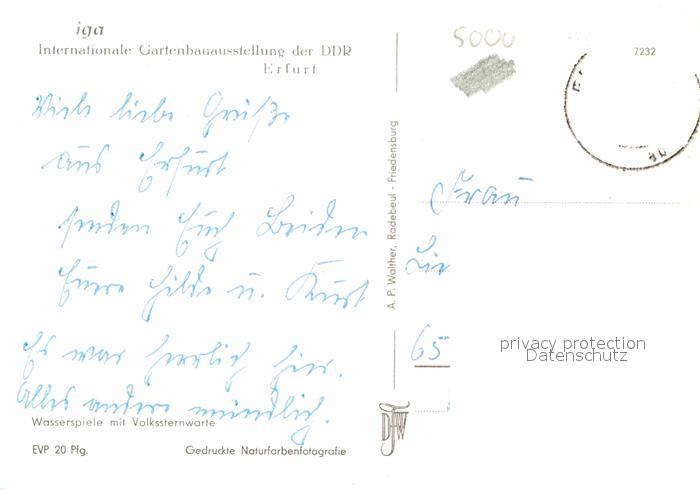 iga
Internationale Gartenbauausstellung der DDR
Erfurt
Viele liebe Grüße
aus Erfurt
senden Euch Beiden
Eure Hilde u. Kurt
Es war herrlich hier.
Alles andere mündlich.
Wasserspiele mit Volkssternwarte
EVP 20 Pfg.
Gedruckte Naturfarbenfotografie
A. P. Walther, Radebeul - Friedensburg
DFW
5000
7232
Frau
65
privacy protection
Datenschutz